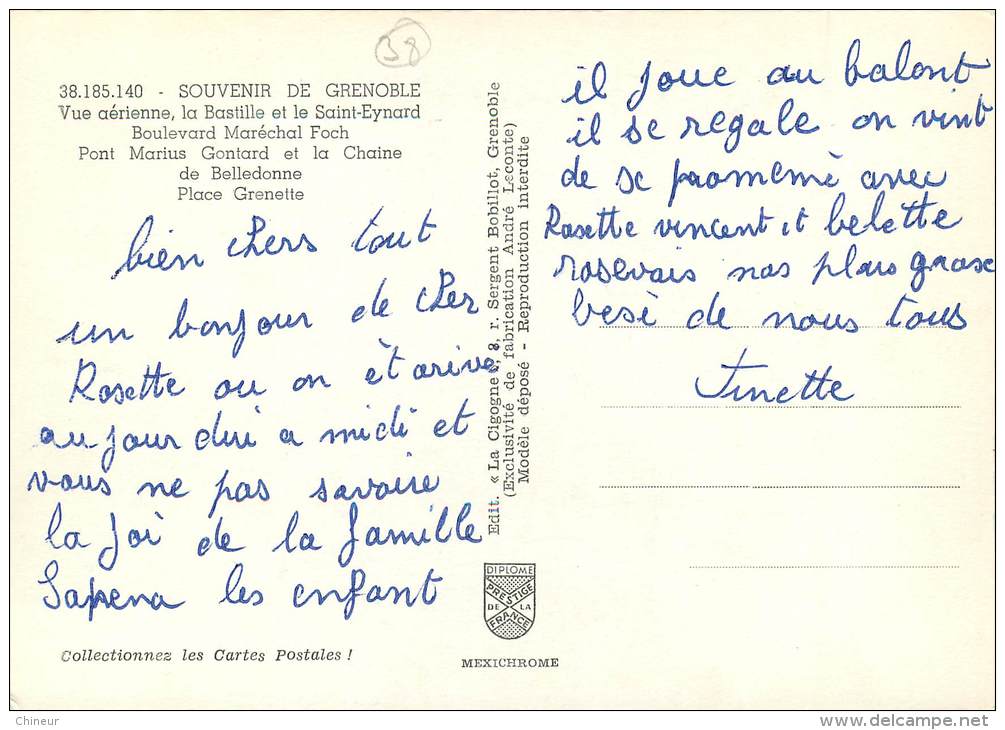 38
38.185.140 - SOUVENIR DE GRENOBLE
Vue aérienne, la Bastille et le Saint-Eynard
Boulevard Maréchal Foch
Pont Marius Gontard et la Chaine
de Belledonne
Place Grenette
bien chers tout
un bonjour de cher
Rosette ou on èt arive
au jour dui a midi et
vous ne pas savoire
la joi de la famille
Sapena les enfant
Collectionnez les Cartes Postales !
Edit. « La Cigogne », 8, r. Sergent Bobillot, Grenoble
(Exclusivité de fabrication André Leconte)
Modèle déposé - Reproduction interdite
DIPLOME
PRESTIGE
DE LA
FRANCE
MEXICHROME
il joue au balont
il se regale on vint
de se promemè avec
Rosette vincent et belette
rosevais nos plus grose
besè de nous tous
Finette
Chineur
www.delcampe.net